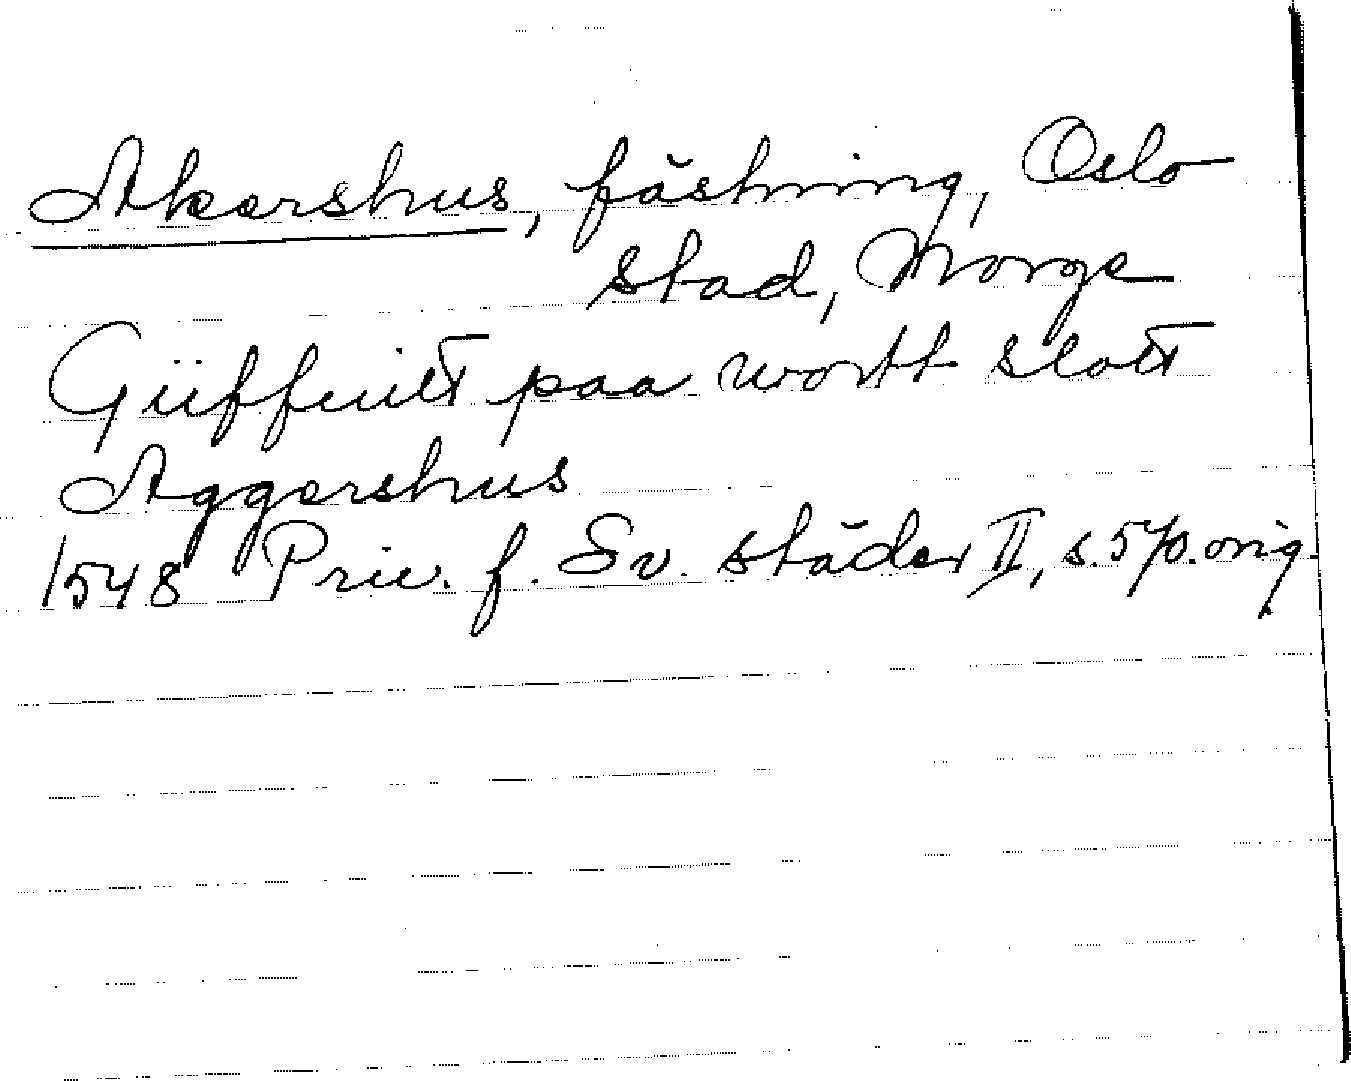 Akershus, fästning, Oslo
stad, Norge
Güffuitt paa wortt slott
Aggershus
1548 Priv. f. Sv. städer II, s. 570. orig.